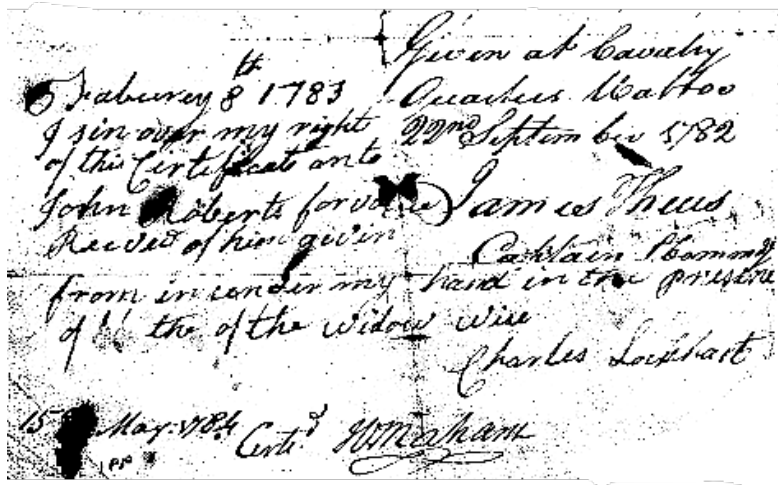 Given at Cavalry
Quarters Mattoo
22nd September 1782
James Theus
Captain Commg
Faburey 8th 1783
I sin over my right
of this Certificate onto
John Roberts for value
Receved of him given
from in conder my hand in the presene
of the of the widow wise
Charles Lockhart
15 May 1784
Certd HMaham